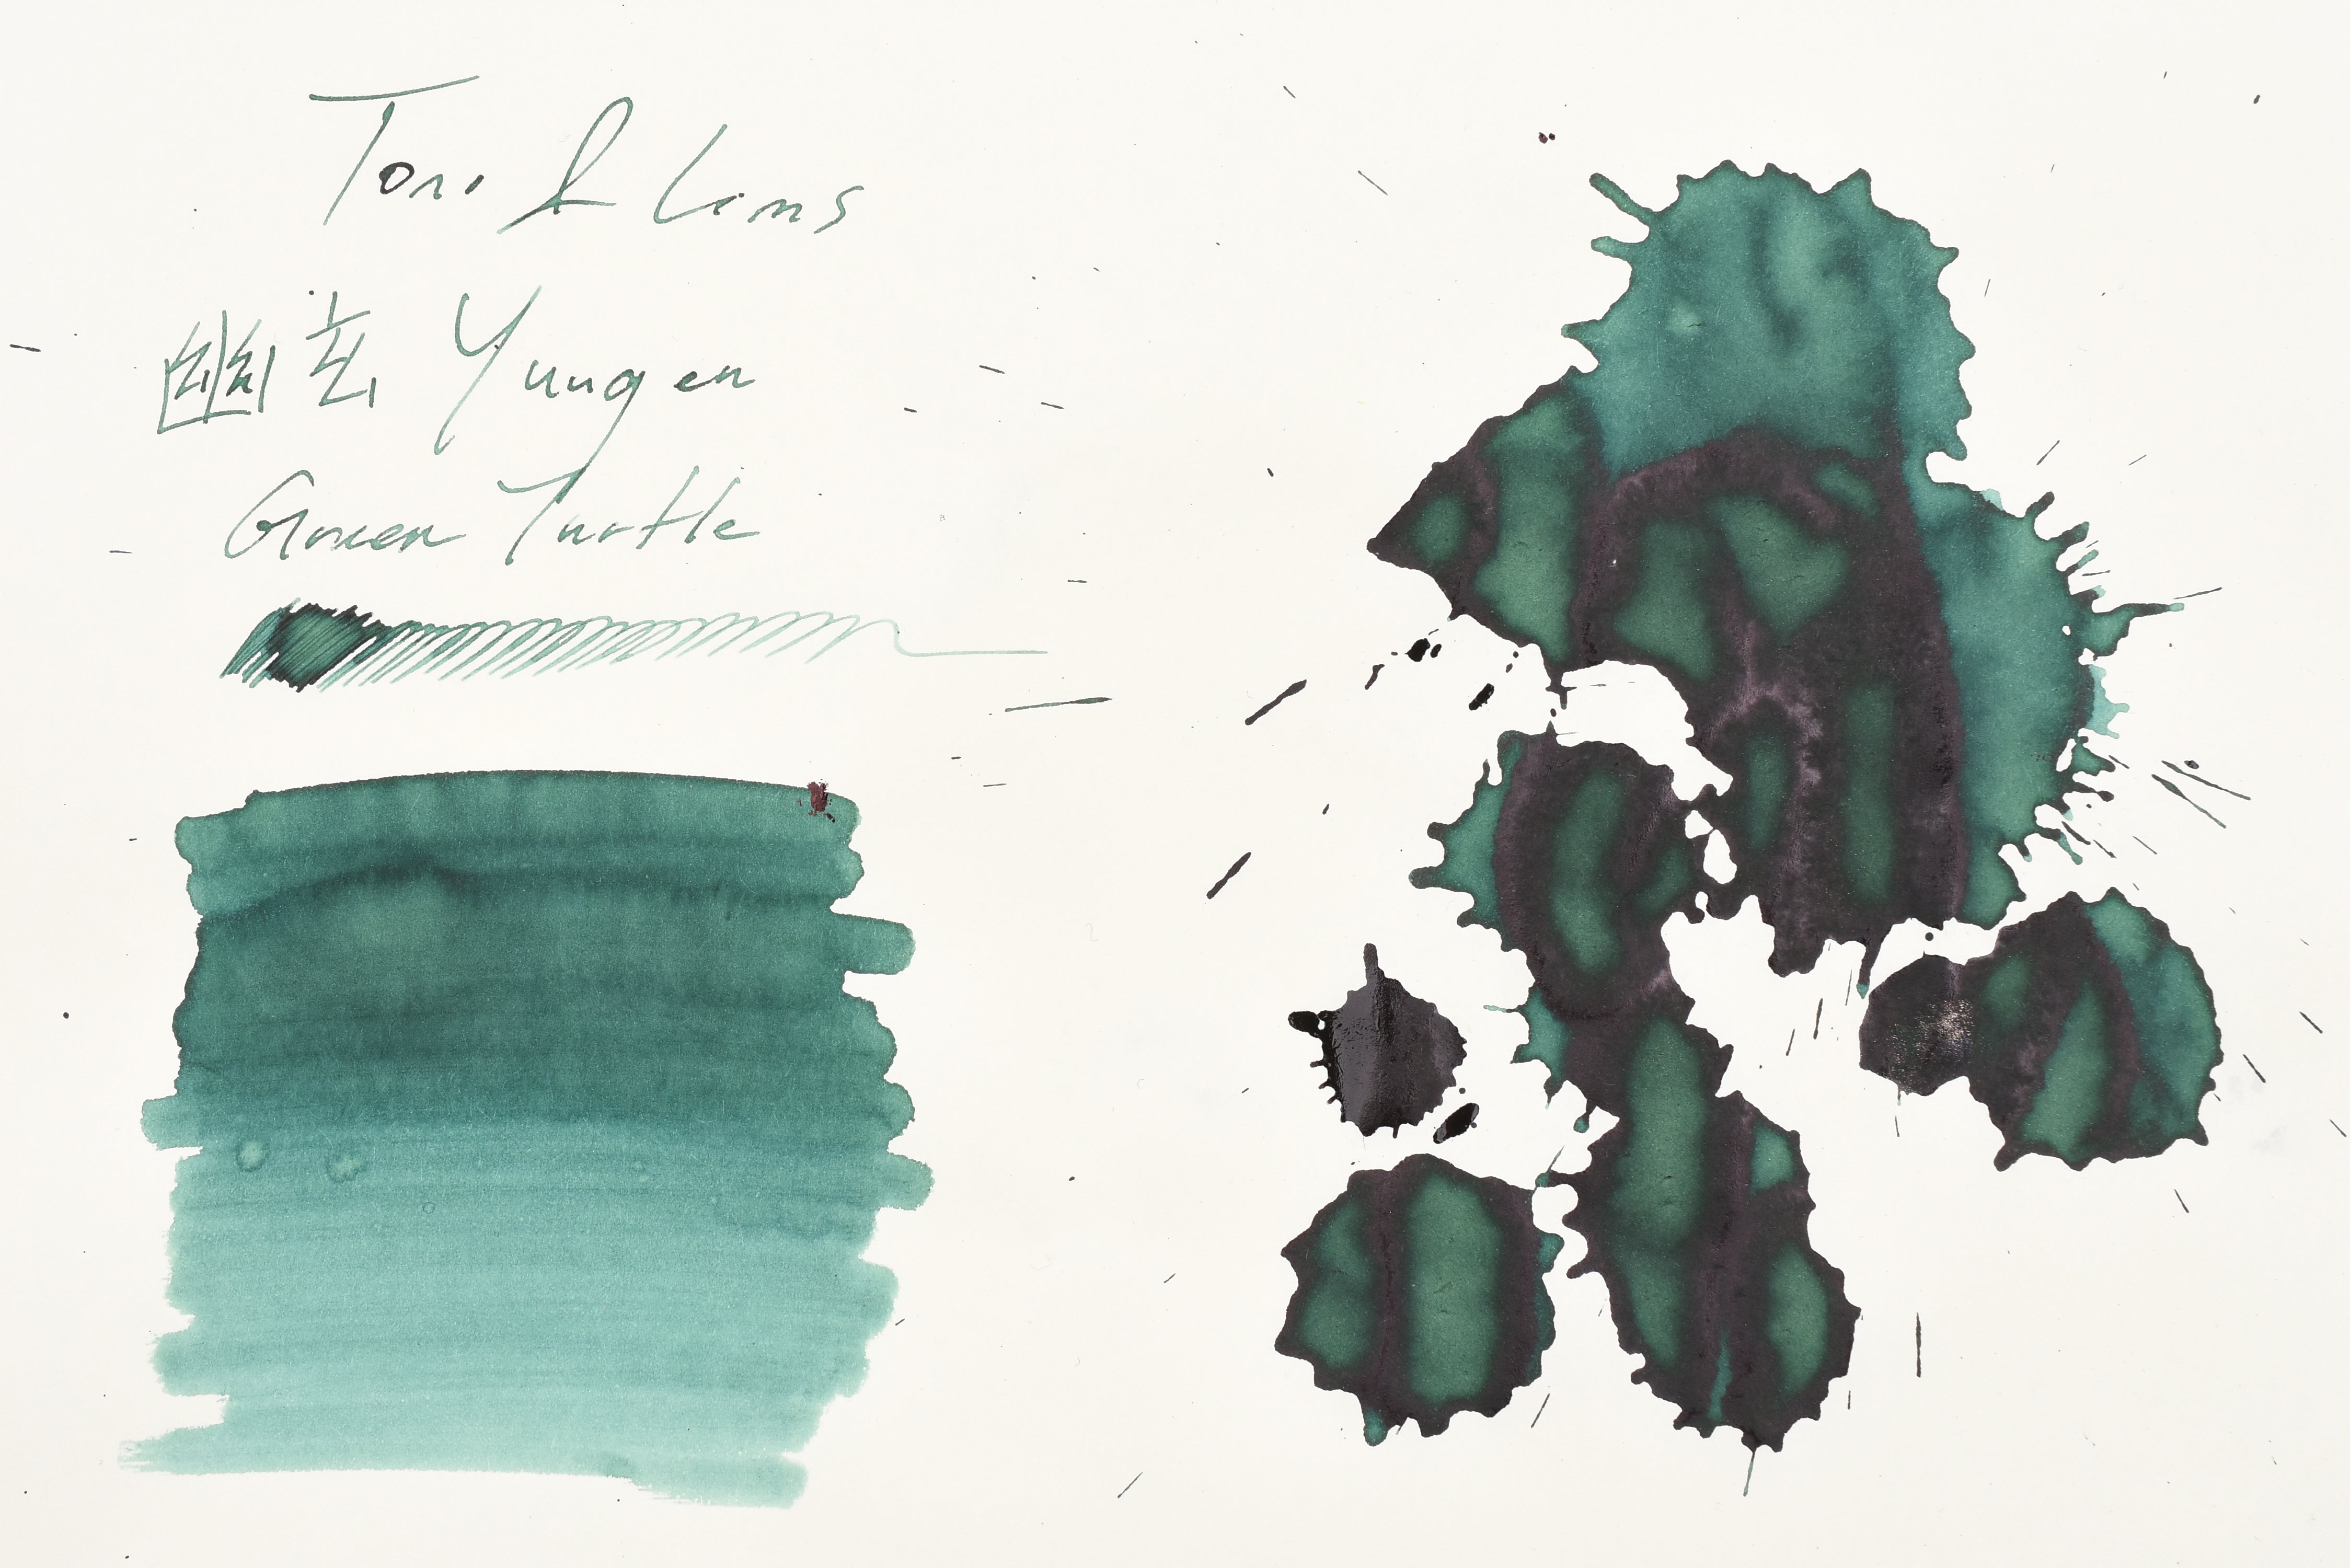 Toni & Lins
幽玄 Yuugen
Green Turtle